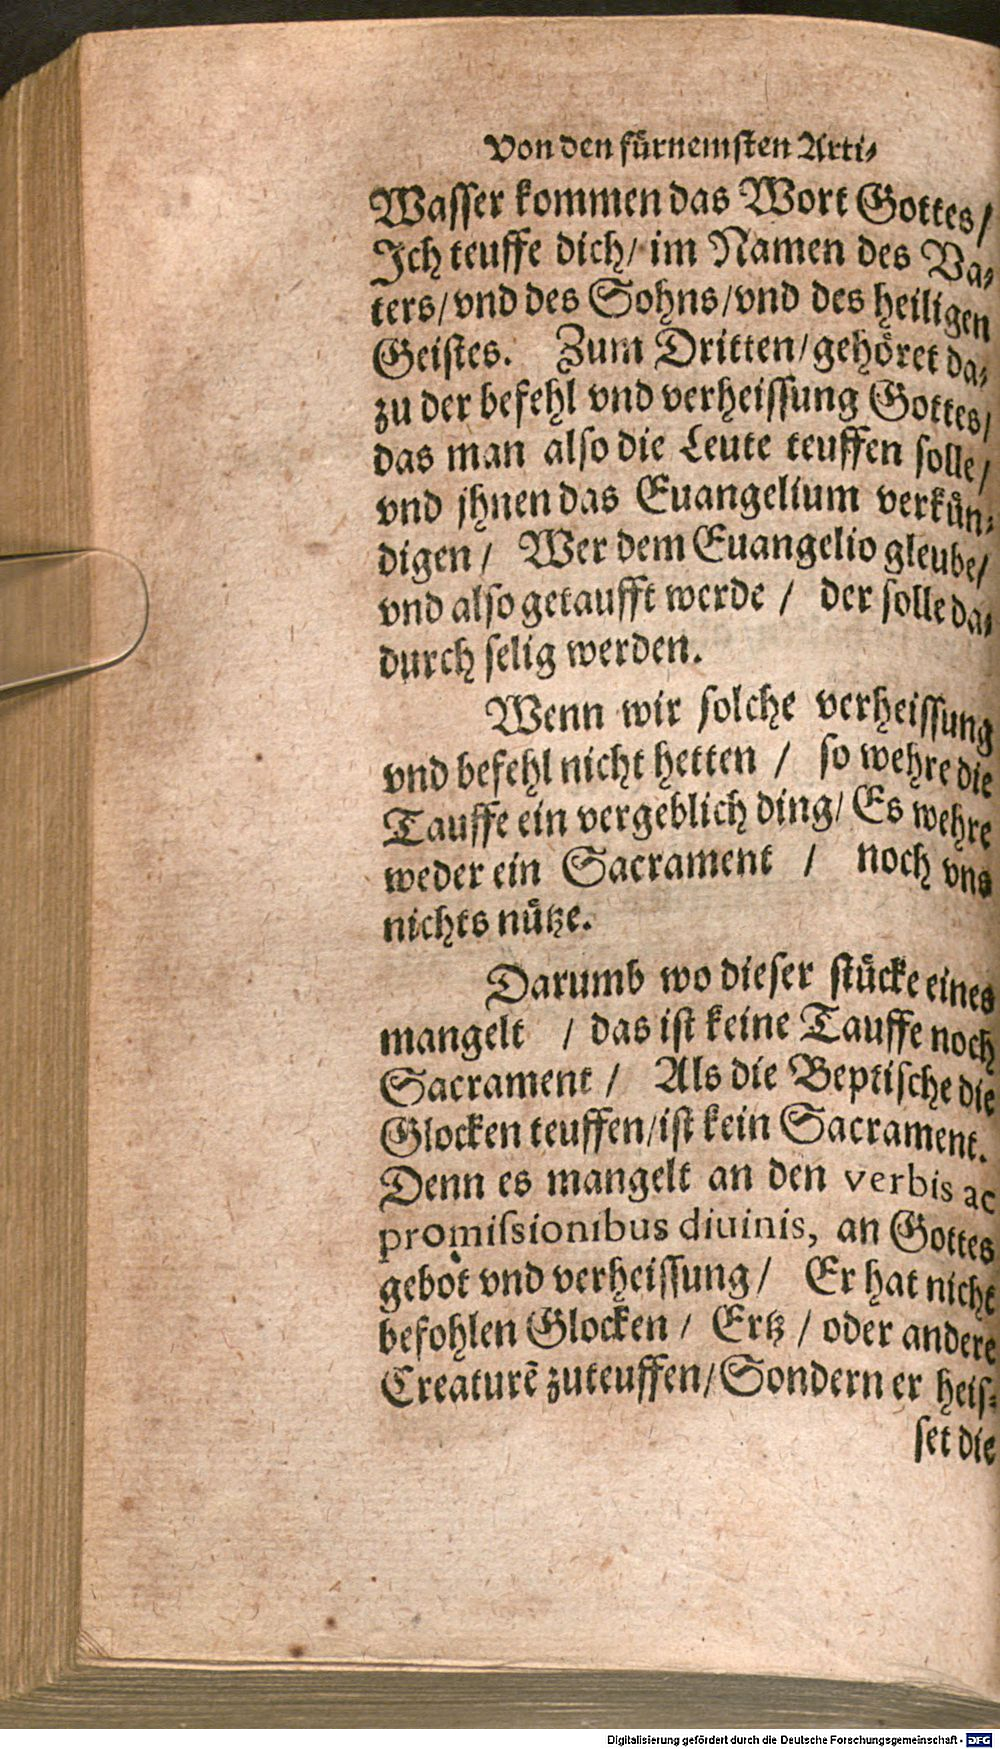 Von den fürnemsten Arti⸗
Wasser kommen das Wort Gottes/
Ich teuffe dich/ im Namen des Va⸗
ters/ vnd des Sohns/ vnd des heiligen
Geistes. Zum Dritten/ gehöret da⸗
zu der befehl vnd verheissung Gottes/
das man also die Leute teuffen solle/
vnd jhnen das Euangelium verkün⸗
digen/ Wer dem Euangelio gleube/
vnd also getaufft werde / der solle da⸗
durch selig werden.
Wenn wir solche verheissung
vnd befehl nicht hetten / so wehre die
Tauffe ein vergeblich ding/ Es wehre
weder ein Sacrament / noch vns
nichts nütze.
Darumb wo dieser stücke eines
mangelt / das ist keine Tauffe noch
Sacrament / Als die Beptische die
Glocken teuffen/ ist kein Sacrament.
Denn es mangelt an den verbis ac
promissionibus diuinis, an Gottes
gebot vnd verheissung/ Er hat nicht
befohlen Glocken / Ertz / oder andere
Creaturē zuteuffen/ Sondern er heis⸗
set die
Digitalisierung gefördert durch die Deutsche Forschungsgemeinschaft - DFG